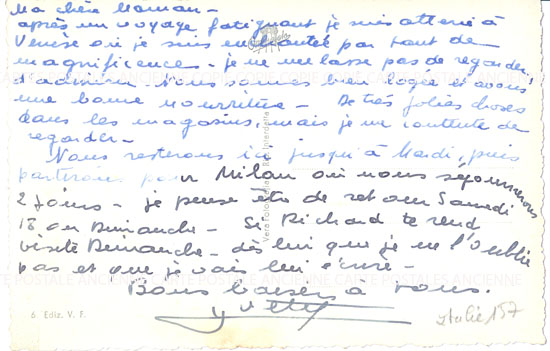 Ma chère Maman -
après un voyage fatiguant je suis atterie à
Venise où je suis enchantée par tant de
magnificences - je ne me lasse pas de regarder,
d'admirer. Nous sommes bien logées et avons
une bonne nourriture - De très jolies choses
dans les magasins, mais je me contente de
regarder -
Nous resterons ici jusqu'à Mardi, puis
partirons pour Milan où nous séjournerons
2 jours - je pense être de retour Samedi
18 ou Dimanche - Si Richard te rend
visite Dimanche - dès lui que je ne l'oublie
pas et que je vais lui écrire
Bons baisers à tous
Yvette
6 Ediz. V. F.
Italie 157
POSTALE ANCIENNE CARTE POSTALES ANCIENNE